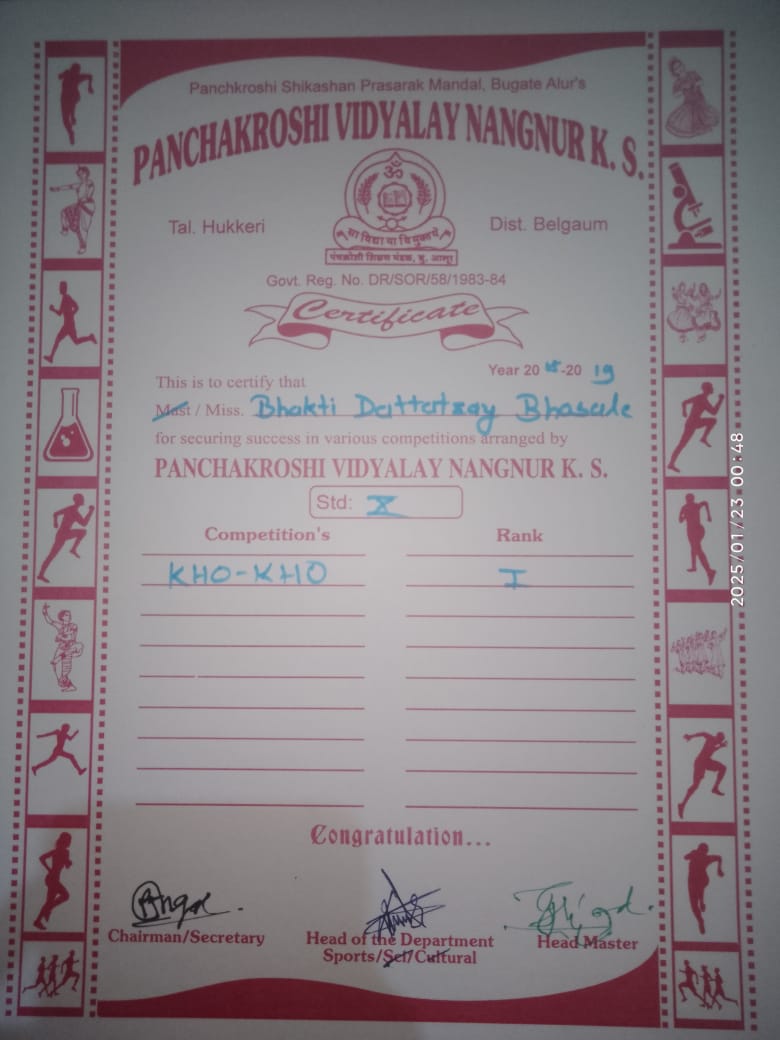 Panchkroshi Shikashan Prasarak Mandal, Bugate Alur's
PANCHAKROSHI VIDYALAY NANGNUR K. S.
Tal. Hukkeri
Dist. Belgaum
ॐ
सा विद्या या विमुक्तये
पंचक्रोशी शिक्षण मंडळ, बु. आलूर
Govt. Reg. No. DR/SOR/58/1983-84
Certificate
Year 20 18-20 19
This is to certify that
Mast / Miss. Bhakti Dattatray Bhosale
for securing success in various competitions arranged by
PANCHAKROSHI VIDYALAY NANGNUR K. S.
Std: X
Competition's Rank
KHO-KHO I
Congratulation...
Chairman/Secretary
Head of the Department
Sports/Sci/Cultural
Head Master
2025/01/23 00:48